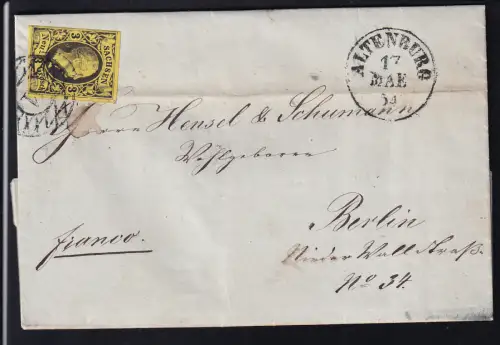 SACHSEN
Neu
3
3
ALTENBURG
17
MAE
Herrn Hensel & Schumann
Wohlgeboren
Berlin
Nieder Wall Straße
No 34.
franco.